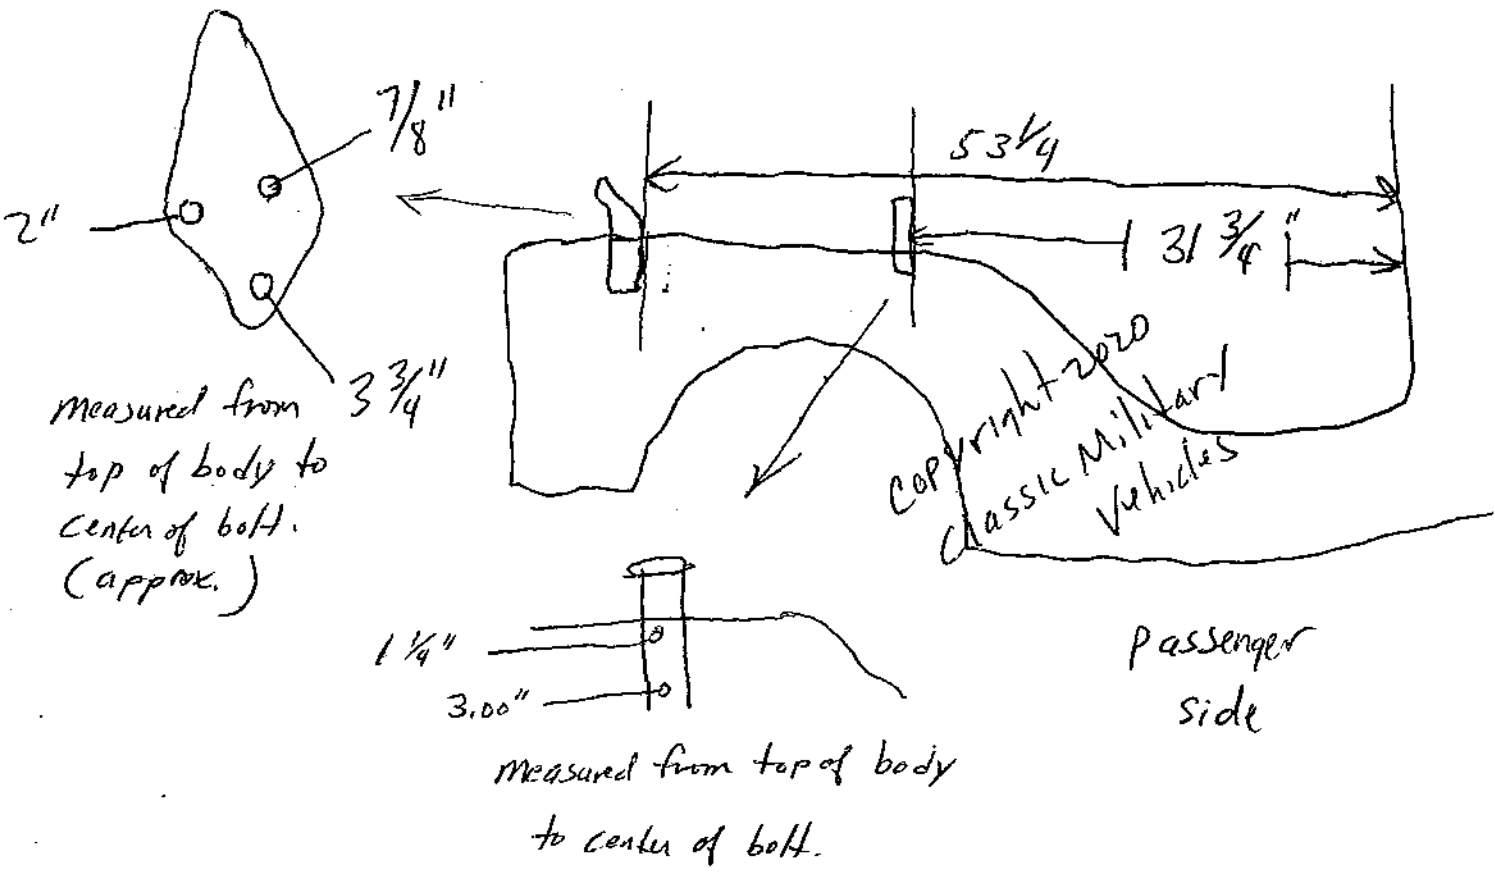 7/8"
2"
3 3/4"
Measured from
top of body to
center of bolt.
(approx.)
53 1/4
31 3/4"
Copyright 2020
Classic Military
Vehicles
1 1/4"
3.00"
Measured from top of body
to center of bolt.
Passenger
side